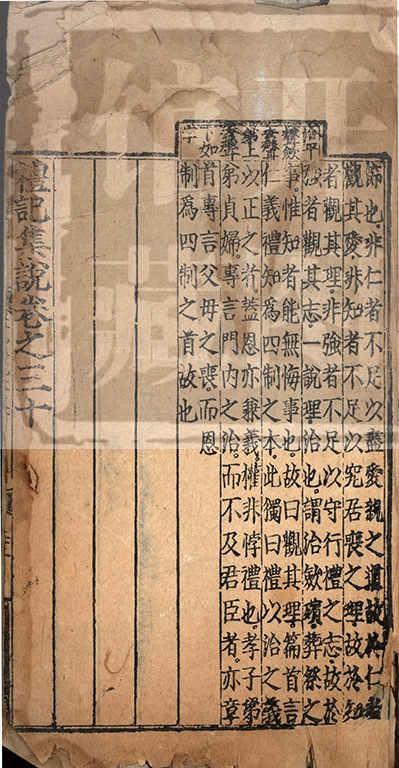 節也非仁者不足以盡愛親之道故於仁者
觀其愛非知者不足以究居喪之理故於知
者觀其理非強者不足以守行禮之志故於
強者觀其志一說理治也謂治斂殯葬祭之
事惟知者能無悔事也故曰觀其理篇首言
仁義禮知為四制之本此獨曰禮以治之義
以正之者蓋恩亦兼義權非悖禮也孝子弟
弟貞婦專言門內之治而不及君臣者亦章
首專言父母之喪而恩
制為四制之首故也
治平聲
斂去聲
弟上去聲
下如字
禮記集說卷之三十